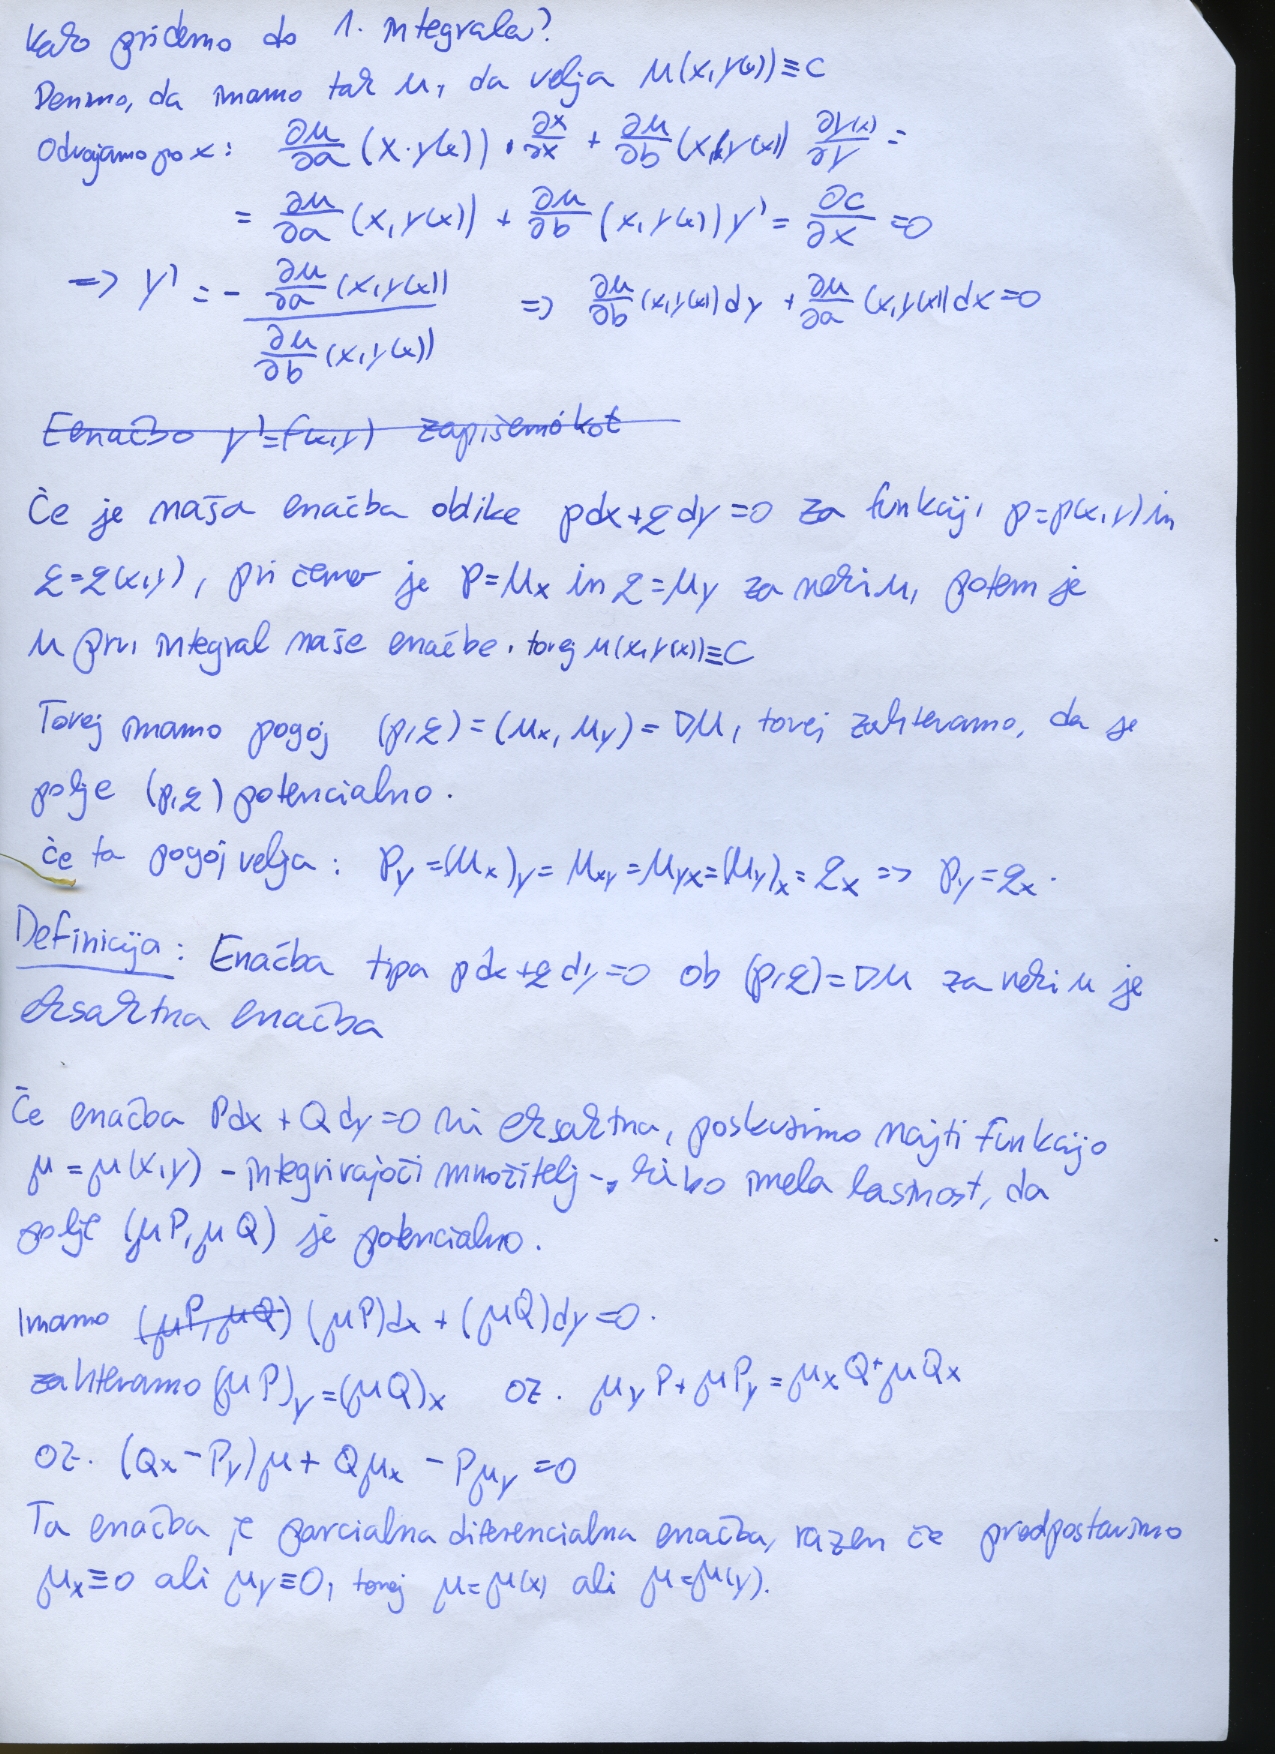 Kako pridemo do 1. integrala?
Denimo, da imamo tak u, da velja u(x,y(x))≡C
Odvajamo po x: ∂u/∂a (x·y(x)) · ∂x/∂x + ∂u/∂b (x,y(x)) ∂y(x)/∂y =
= ∂u/∂a (x,y(x)) + ∂u/∂b (x,y(x)) y' = ∂c/∂x = 0
=> y' = - ∂u/∂a (x,y(x)) / ∂u/∂b (x,y(x)) => ∂u/∂b (x,y(x))dy + ∂u/∂a (x,y(x))dx = 0
Eenačbo y'=f(x,y) zapišemo kot
Če je naša enačba oblike pdx+qdy=0 za funkciji p=p(x,y) in
q=q(x,y), pri čemer je p=ux in q=uy za neki u, potem je
u prvi integral naše enačbe, torej u(x,y(x))≡C
Torej imamo pogoj (p,q)=(ux,uy)=∇u, torej zahtevamo, da je
polje (p,q) potencialno.
če ta pogoj velja: py=(ux)y=uxy=uyx=(uy)x=qx => py=qx.
Definicija: Enačba tipa pdx+qdy=0 ob (p,q)=∇u za neki u je
eksaktna enačba
Če enačba Pdx+Qdy=0 ni eksaktna, poskusimo najti funkcijo
μ=μ(x,y) - integrirajoči množitelj -, ki bo imela lastnost, da
polje (μP,μQ) je potencialno.
Imamo (μP,μQ) (μP)dx+(μQ)dy=0.
zahtevamo (μP)y=(μQ)x oz. μyP+μPy=μxQ+μQx
oz. (Qx-Py)μ+Qμx-Pμy=0
Ta enačba je parcialna diferencialna enačba, razen če predpostavimo
μx≡0 ali μy≡0, torej μ=μ(x) ali μ=μ(y).